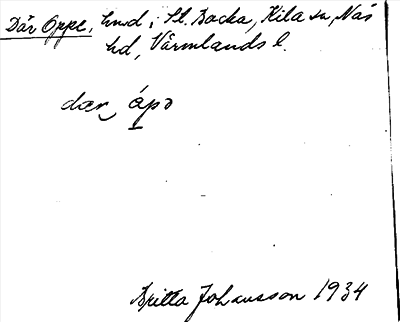 Där Oppe, hmd i St. Backa, Kila sn, Näs
hd, Värmlands l.
dær ápə
Britta Johansson 1934